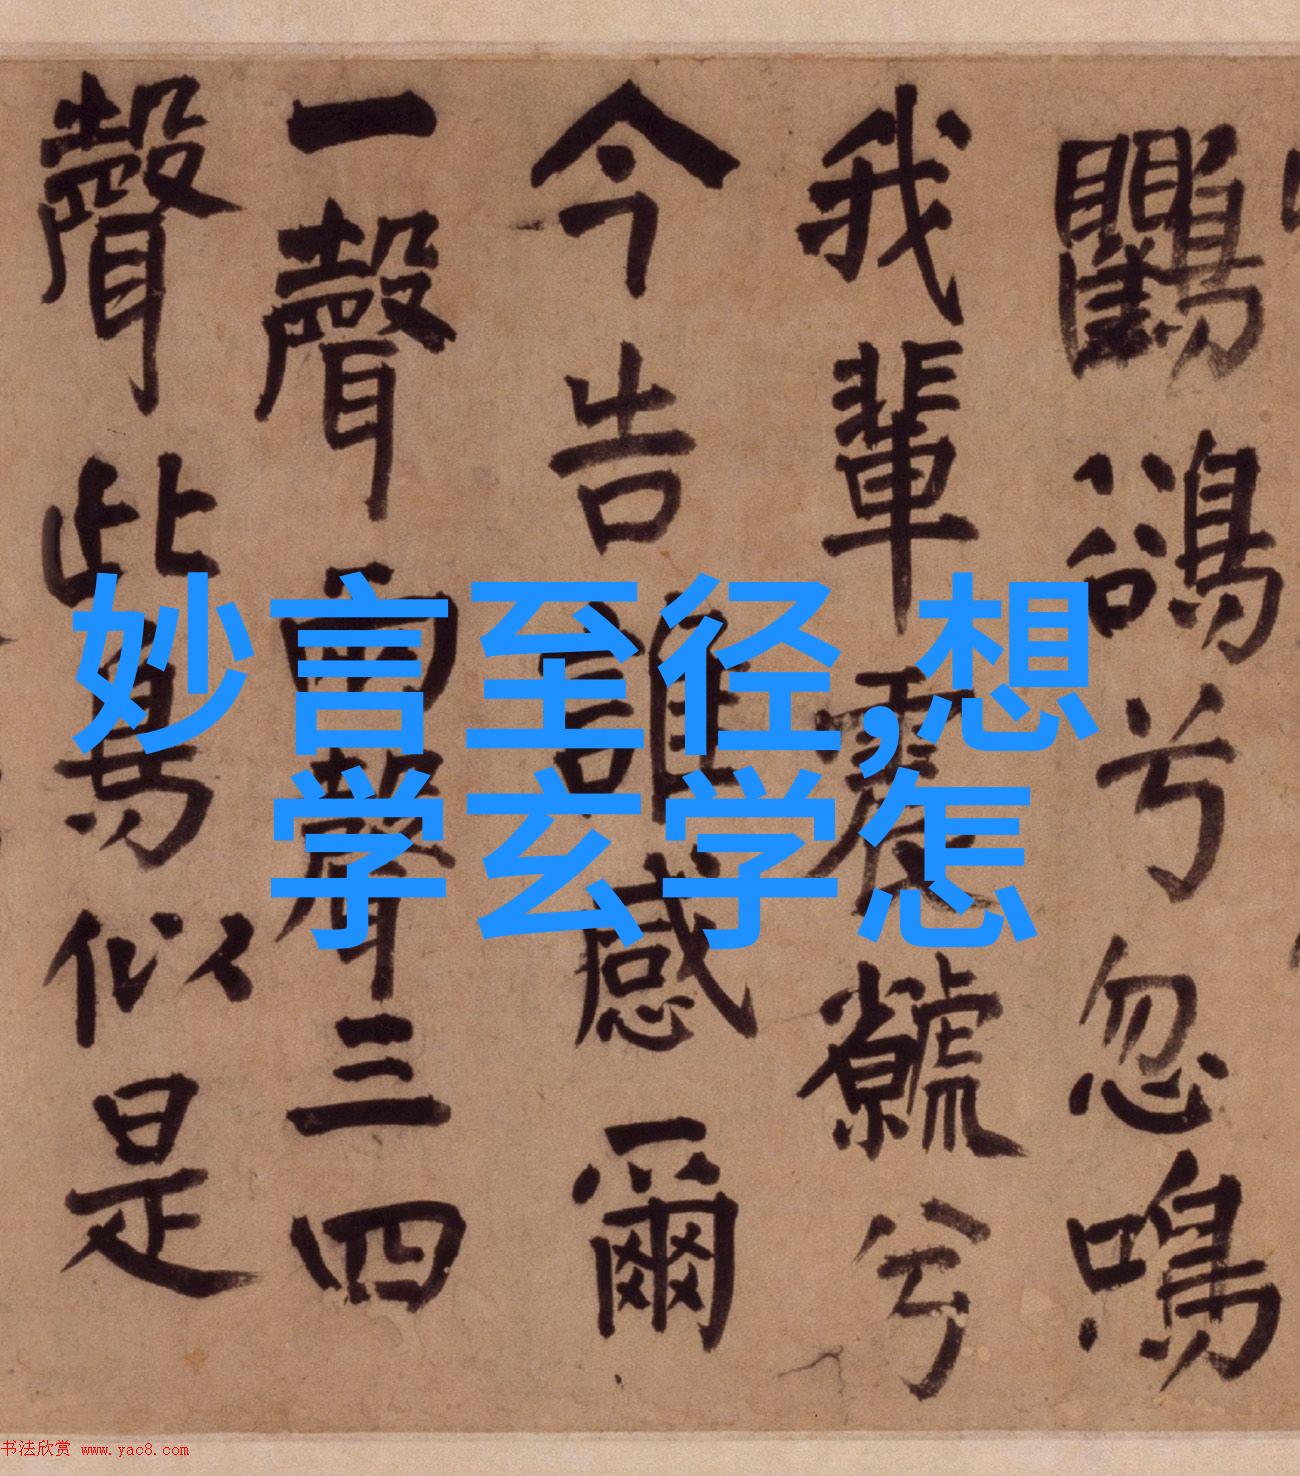 妙言至径,想
学玄学怎
鸜鵒兮忽鳴
我輩兮
今告誰感爾
一聲兩聲三四
聲此鳥似是
书法欣赏 www.yac8.com